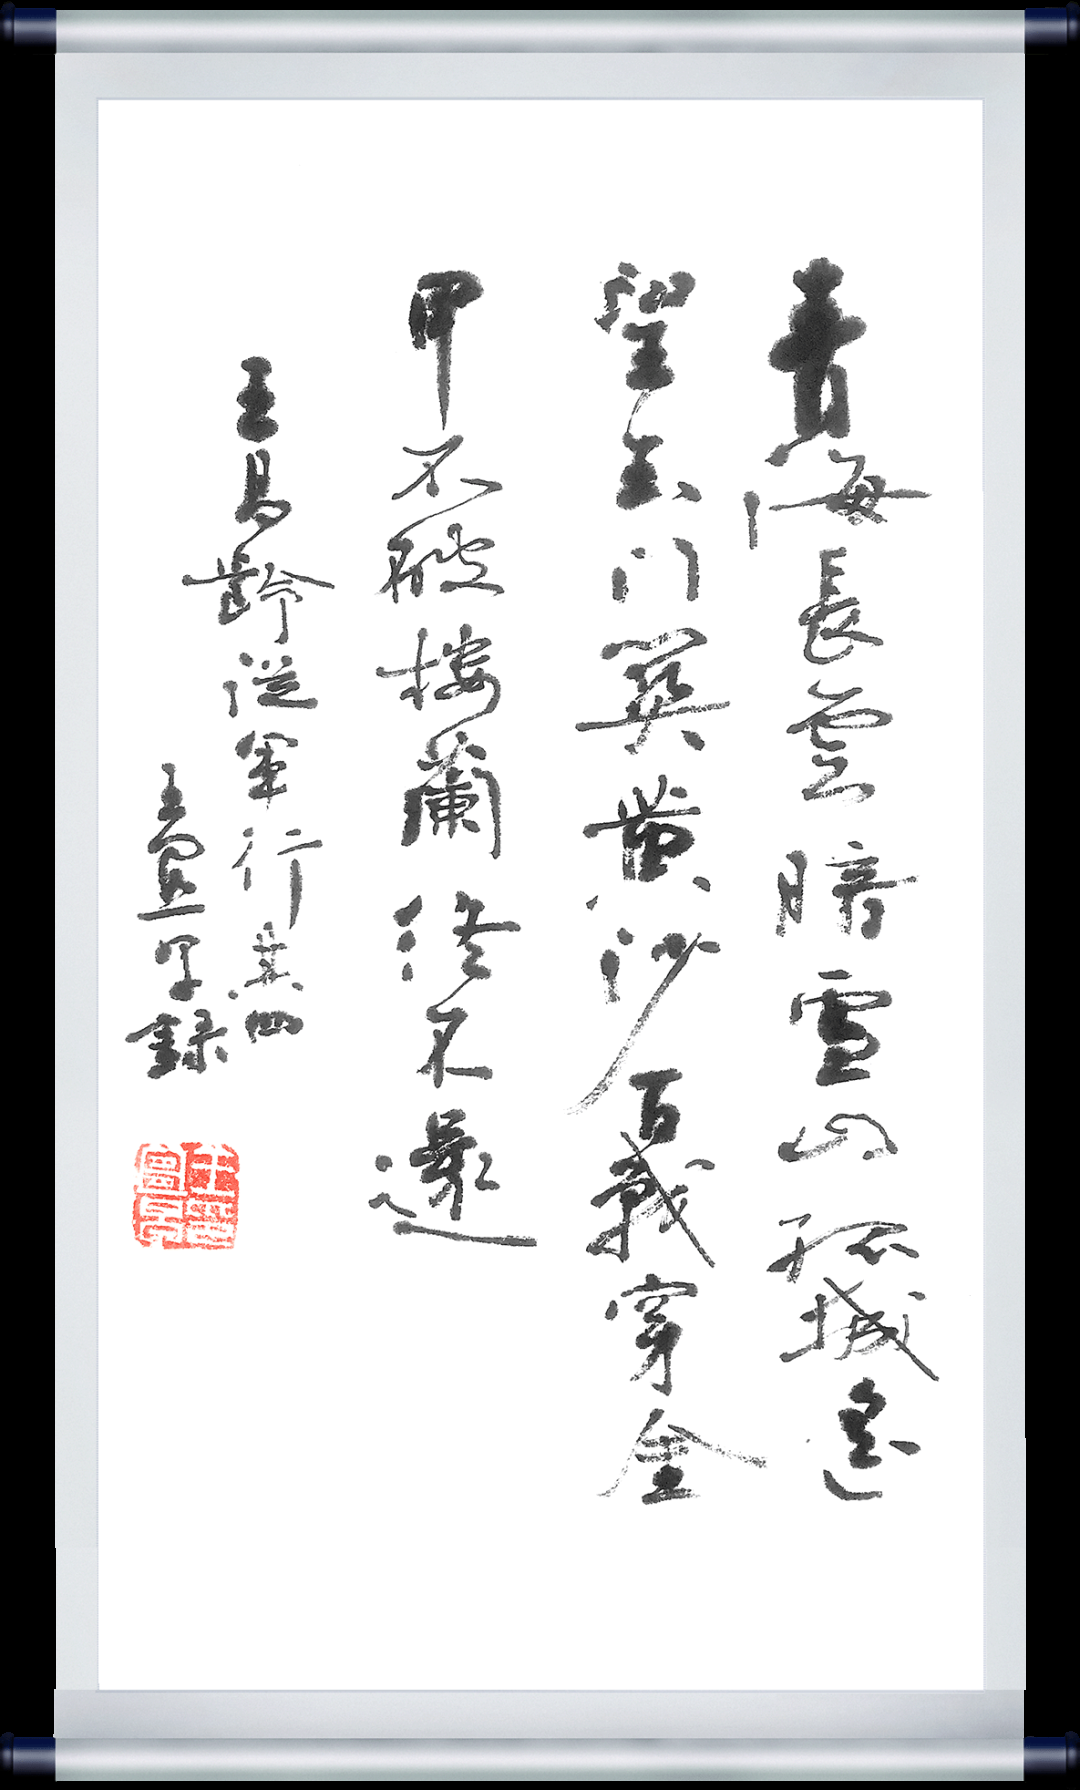 青海長雲暗雪山孤城遙
望玉門關黃沙百戰穿金
甲不破樓蘭終不還
王昌齡從軍行其四
王 錄